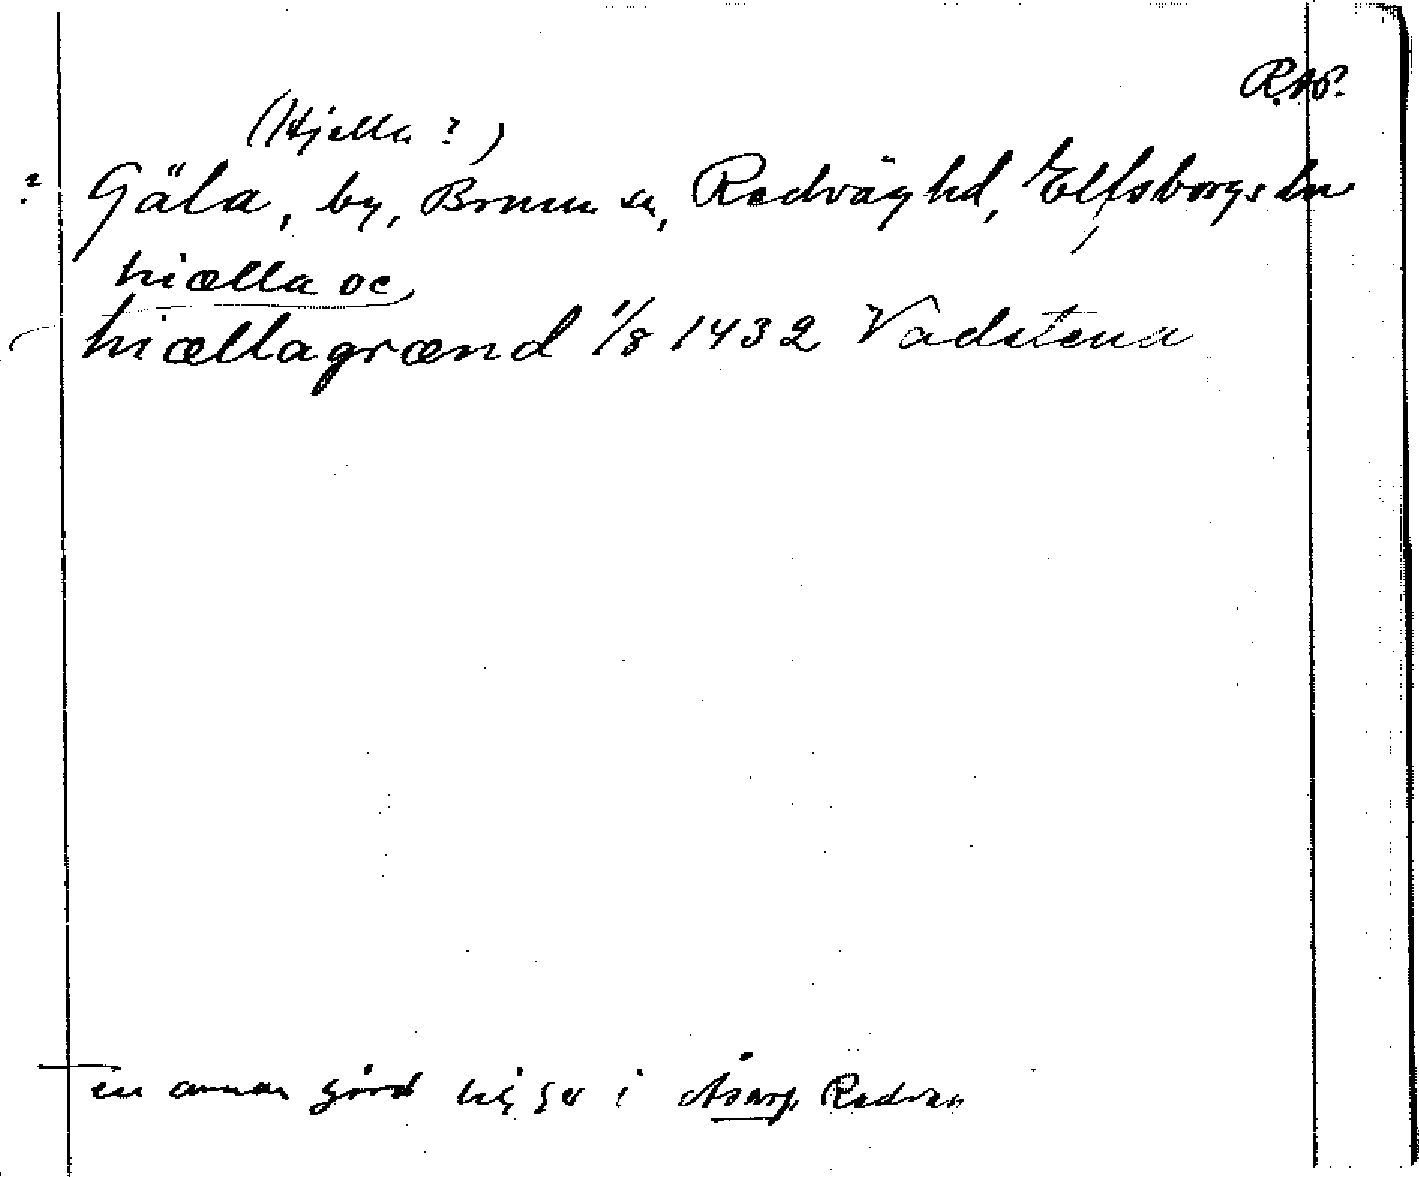 R.A.P.
(Hjella ?)
? Gäla, by, Brunn sn, Redväg hd, Elfsborgs län
hiælla oc
hiællagrænd 1/8 1432 Vadstena
en annan gård ligger i Åsarp, Redväg